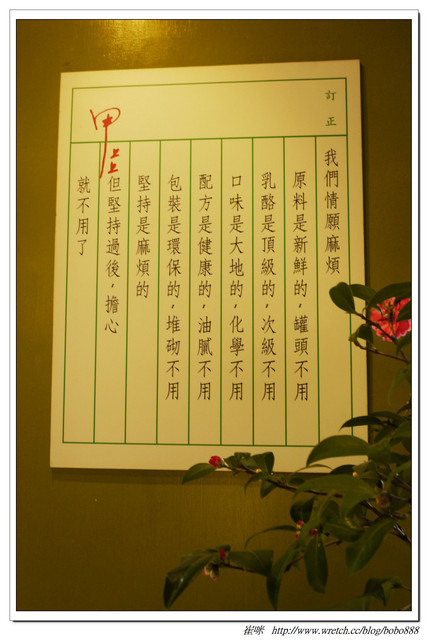 訂正
我們情願麻煩
原料是新鮮的，罐頭不用
乳酪是頂級的，次級不用
口味是大地的，化學不用
配方是健康的，油膩不用
包裝是環保的，堆砌不用
堅持是麻煩的
但堅持過後，擔心
就不用了
甲上上
崔咪 http://www.wretch.cc/blog/bobo888